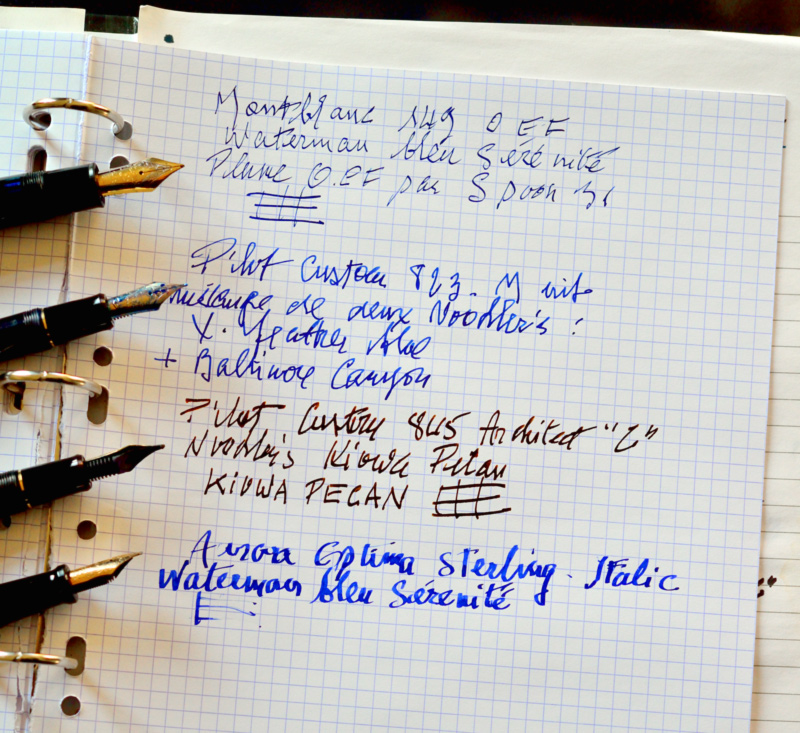 Montblanc 149 O EF
Waterman bleu Sérénité
Plume O.EF par Spoon
Pilot Custom 823. M
mélange de deux Noodler's :
X. Feather blue
+ Baltimore Canyon
Pilot Custom 845 Architect "Z"
Noodler's Kiowa Pecan
KIOWA PECAN
Aurora Optima Sterling. Italic
Waterman bleu Sérénité